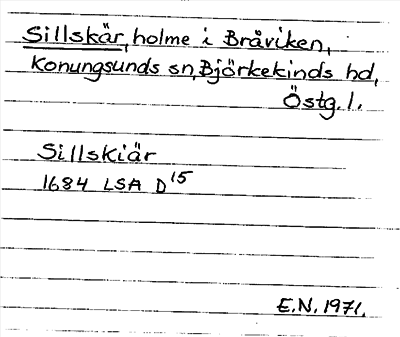 Sillskär, holme i Bråviken,
Konungsunds sn, Björkekinds hd,
Östg. l.
Sillskiär
1684 LSA D15
E.N. 1971.